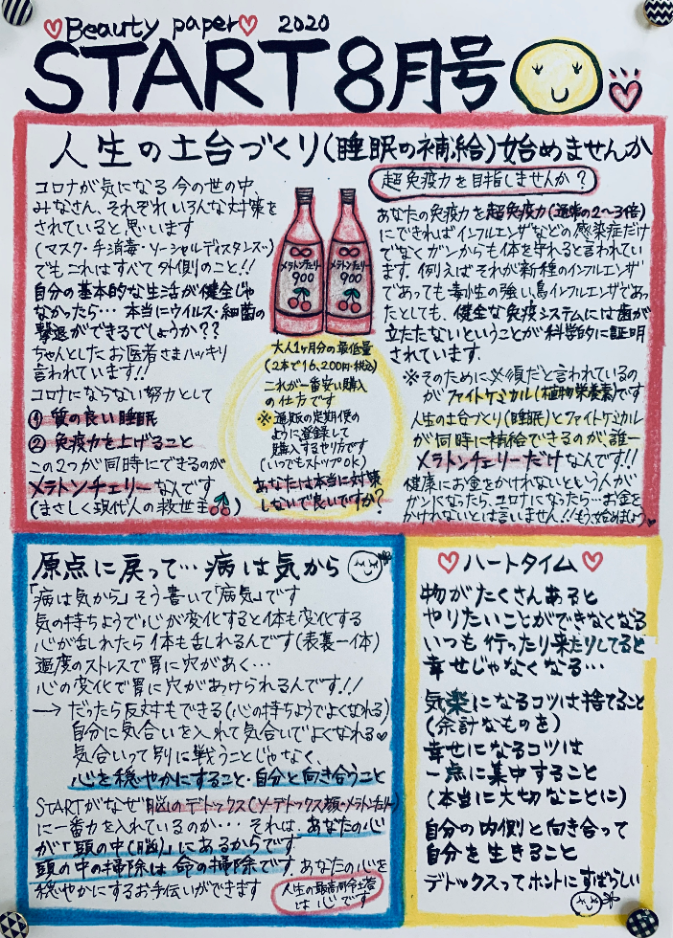 ♡Beauty paper♡ 2020
START 8月号
人生の土台づくり(睡眠の補給)始めませんか
コロナが気になる今の世の中、
みなさん、それぞれいろんな対策を
されていると思います
(マスク・手消毒・ソーシャルディスタンス…)
でもこれはすべて外側のこと!!
自分の基本的な生活が健全じゃ
なかったら…本当にウイルス・細菌の
撃退ができるでしょうか??
ちゃんとしたお医者さまハッキリ
言われています!!
コロナにならない努力として
①質の良い睡眠
②免疫力を上げること
この2つが同時にできるのが
メラトンチェリーなんです
(まさしく現代人の救世主)
メラトンチェリー
900
メラトンチェリー
900
大人1ヶ月分の最低量
(2本で16,200円・税込)
これが一番安い購入
の仕方です
※通販の定期便の
ように登録して
購入するやり方です
(いつでもストップOK)
あなたは本当に対策
しないで良いですか?
超免疫力を目指しませんか?
あなたの免疫力を超免疫力(通常の2〜3倍)
にできればインフルエンザなどの感染症だけ
でなくガンからも体を守れると言われてい
ます。例えばそれが新種のインフルエンザ
であっても毒性の強い鳥インフルエンザであっ
たとしても、健全な免疫システムには歯が
立たないということが科学的に証明
されています。
※そのために必須だと言われているの
がファイトケミカル(植物栄養素)です
人生の土台づくり(睡眠)とファイトケミカル
が同時に補給できるのが、唯一
メラトンチェリーだけなんです!!
健康にお金をかけないという人が
ガンになったら、コロナになったら…お金を
かけれないとは言いません!!もう始めましょう♥
原点に戻って…病は気から
「病は気から」そう書いて「病気」です
気の持ちようで心が変化すると体も変化する
心が乱れたら体も乱れるんです(表裏一体)
過度のストレスで胃に穴があく…
心の変化で胃に穴があけられるんです!!
→だったら反対もできる(心の持ちようでよくなれる)
自分に気合いを入れて気合いでよくなれる♥
気合いって別に戦うことじゃなく、
心を穏やかにすること・自分と向き合うこと
STARTがなぜ脳のデトックス(ソーデトックス・頭・メラトンチェリー)
に一番力を入れているのか…それは、あなたの心
が「頭の中(脳)」にあるからです
頭の中の掃除は命の掃除です。あなたの心を
穏やかにするお手伝いができます
人生の最高司令塔
は心です
♡ハートタイム♡
物がたくさんあると
やりたいことができなくなる
いつも行ったり来たりしてると
幸せじゃなくなる…
気楽になるコツは捨てること
(余計なものを)
幸せになるコツは
一点に集中すること
(本当に大切なことに)
自分の内側と向き合って
自分を生きること
デトックスってホントにすばらしい